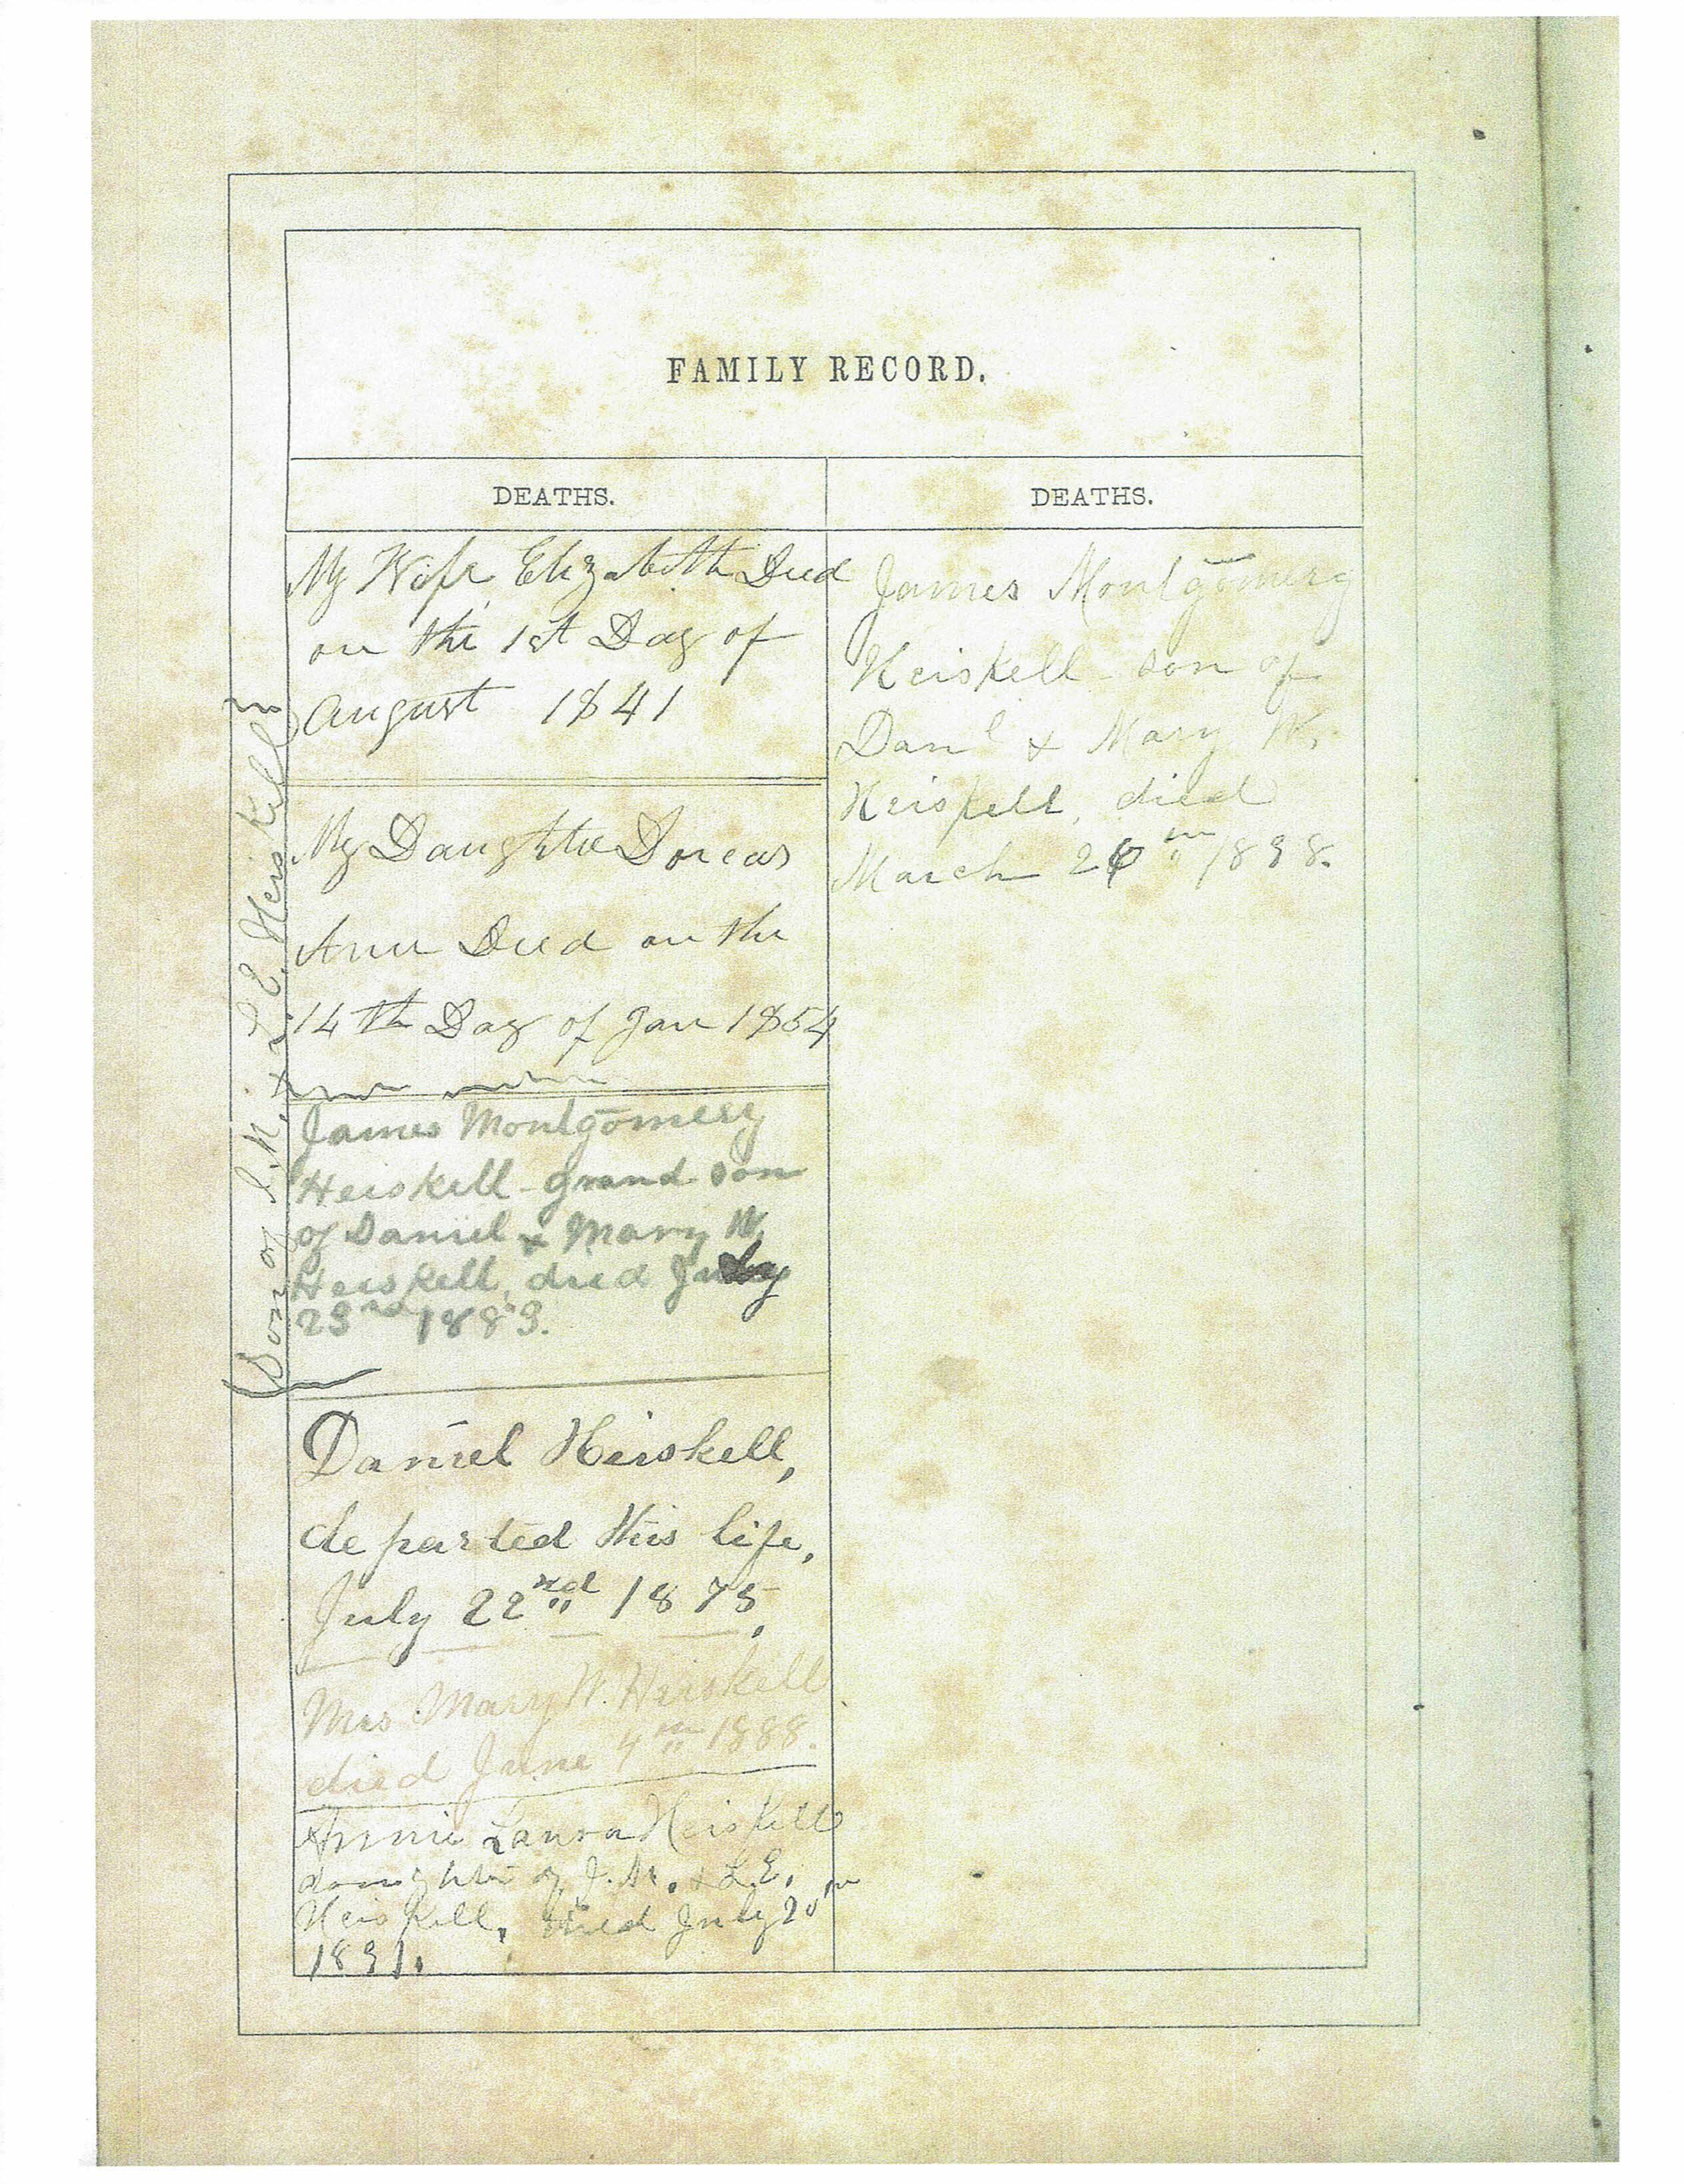 FAMILY RECORD.
DEATHS.
My Wife Elizabeth Died
on the 1st Day of
August 1841
My Daughter Dorcas
Ann Died on the
14th Day of Jan 1854
James Montgomery
Heiskell - grand son
of Daniel & Mary W.
Heiskell, died July
23rd 1883.
(Son of J. M. & L. E. Heiskell)
Daniel Heiskell,
departed this life,
July 22nd 1875,
Mrs Mary W. Heiskell
died June 4th 1888.
Annie Laura Heiskell
daughter of J. M. & L. E.
Heiskell, died July 20th
1891.
DEATHS.
James Montgomery
Heiskell - son of
Danl & Mary W.
Heiskell, died
March th 1898.